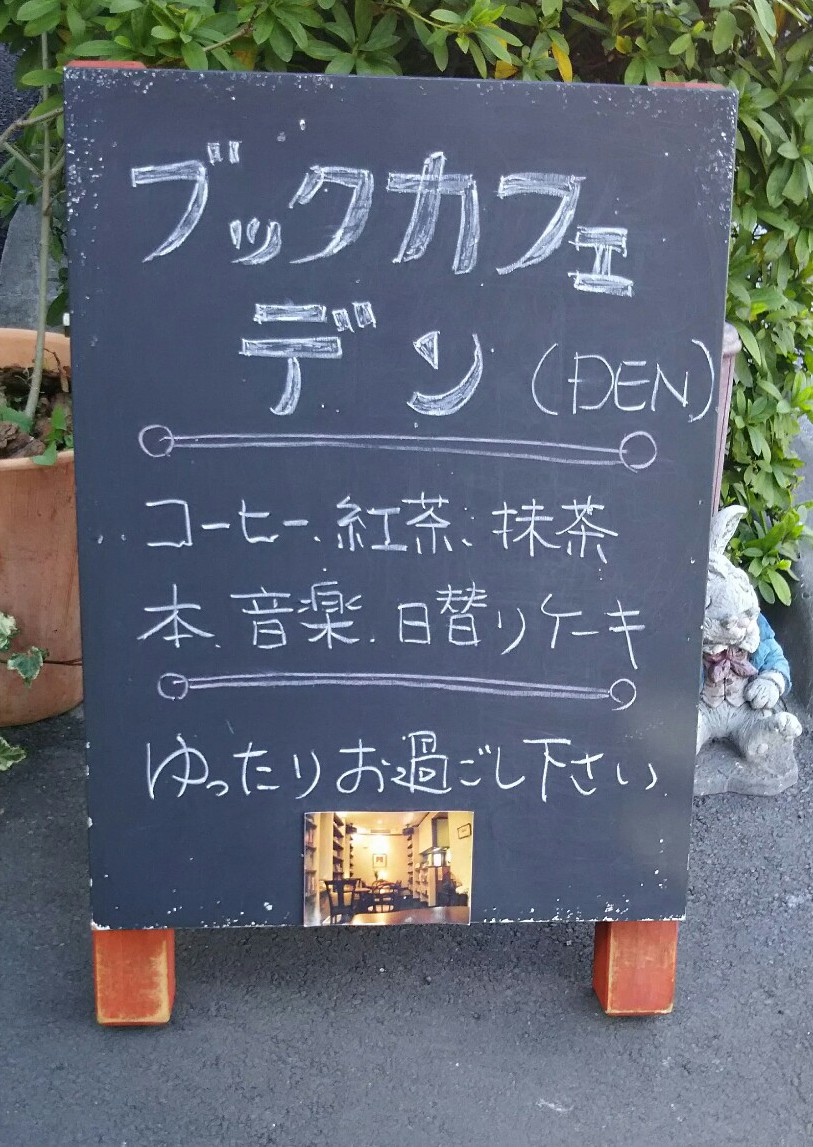 ブックカフェ
デン(DEN)
コーヒー、紅茶、抹茶
本、音楽、日替りケーキ
ゆったりお過ごし下さい